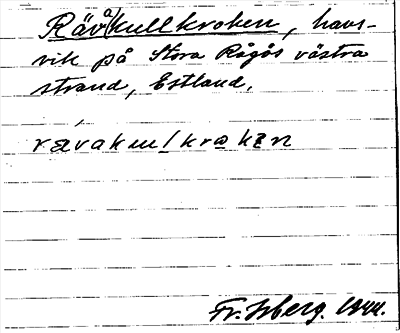 Räv(a)kullkroken, havs-
vik på Stora Rågös västra
strand, Estland.
rævakul/krokən
Fr. Isberg. 1944.